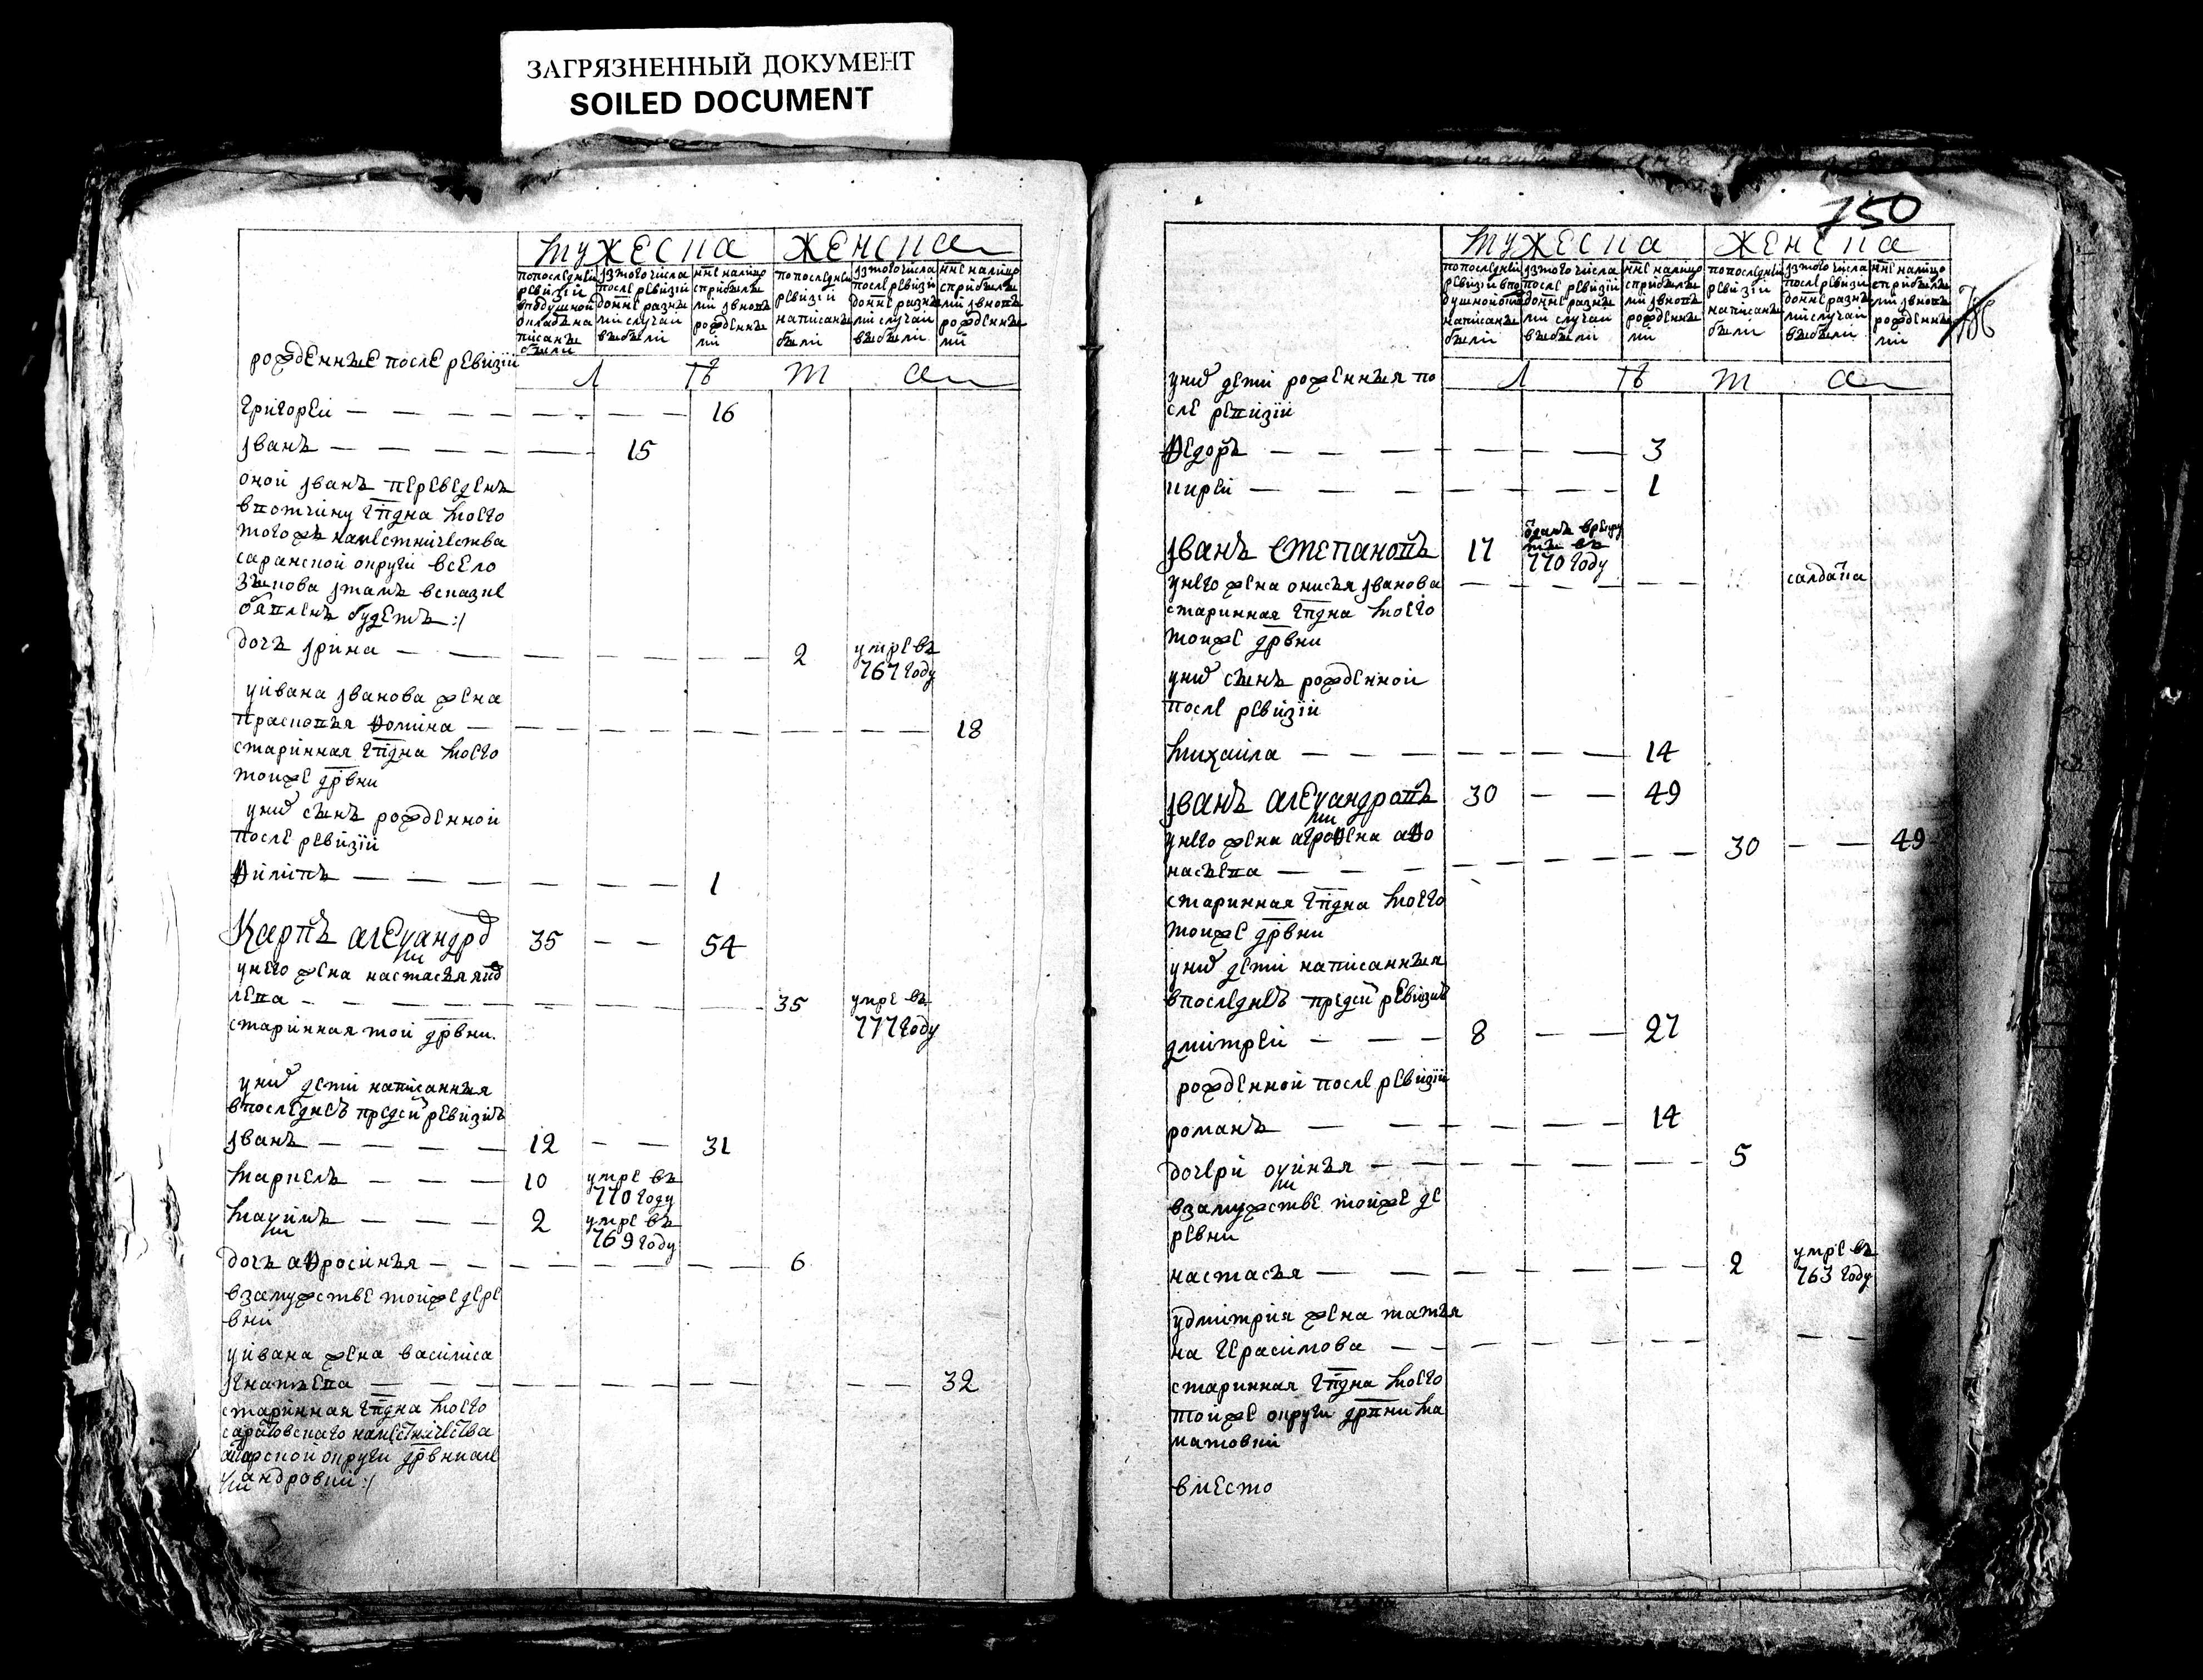 ЗАГРЯЗНЕННЫЙ ДОКУМЕНТ
SOILED DOCUMENT
мужеска женска
попоследней ревизии вподушной окладъ написаны были
изтого числа после ревизии донне разными случаи выбыли
нне налицо сприбылыми ивновь рожденными
попоследней ревизии написаны были
изтого числа после ревизии донне разными случаи выбыли
нне налицо сприбылыми ивновь рожденными
рожденные после ревизии
лѣта
григореи 16
иванъ 15
оной иванъ переведенъ
ввотчину гпдна моего
тогожъ наместничества
саранской округи всело
зыкова итамъ всказке
обявленъ будетъ :/
дочь ирина 2 умре въ
767 году
уивана иванова жена
прасковья фомина 18
старинная гпдна моего
тойже дрвни
унихъ сынъ рожденной
после ревизии
филипъ 1
Карпъ алеѯандровъ 35 54
унего жена настасья яков
лева 35 умре въ
777 году
старинная той дрвни.
унихъ дети написанныя
впоследнеъ предсй ревизиъ
иванъ 12 31
маркелъ 10 умре въ
770 году
маѯимъ 2 умре въ
769 году
дочь афросинья 6
взамужстве тойже дере
вни
уивана жена василиса
игнатьева 32
старинная гпдна моего
саратовскаго наместничества
аткарской округи дрвни але
ѯандровки :/
150
мужеска женска
попоследней ревизии вподушной окладъ написаны были
изтого числа после ревизии донне разными случаи выбыли
нне налицо сприбылыми ивновь рожденными
попоследней ревизии написаны были
изтого числа после ревизии донне разными случаи выбыли
нне налицо сприбылыми ивновь рожденными
лѣта
унихъ дети рожденныя по
сле ревизии
федоръ 3
кирей 1
иванъ степановъ 17 отданъ врекру
ты въ
770 году
унего жена онисья иванова салдатка
старинная гпдна моего
тойже дрвни
унихъ сынъ рожденной
после ревизии
михаила 14
иванъ алеѯандровъ 30 49
унего жена аграфена афо
насьева 30 49
старинная гпдна моего
тойже дрвни
унихъ дети написанныя
впоследнеъ предсй ревизиъ
дмитрей 8 27
рожденной после ревизии
романъ 14
дочери оѯинья 5
взамужстве тойже де
ревни
настасья 2 умре въ
763 году
удмитрия жена татья
на герасимова
старинная гпдна моего
тойже округи дрвни ма
матовки
вместо